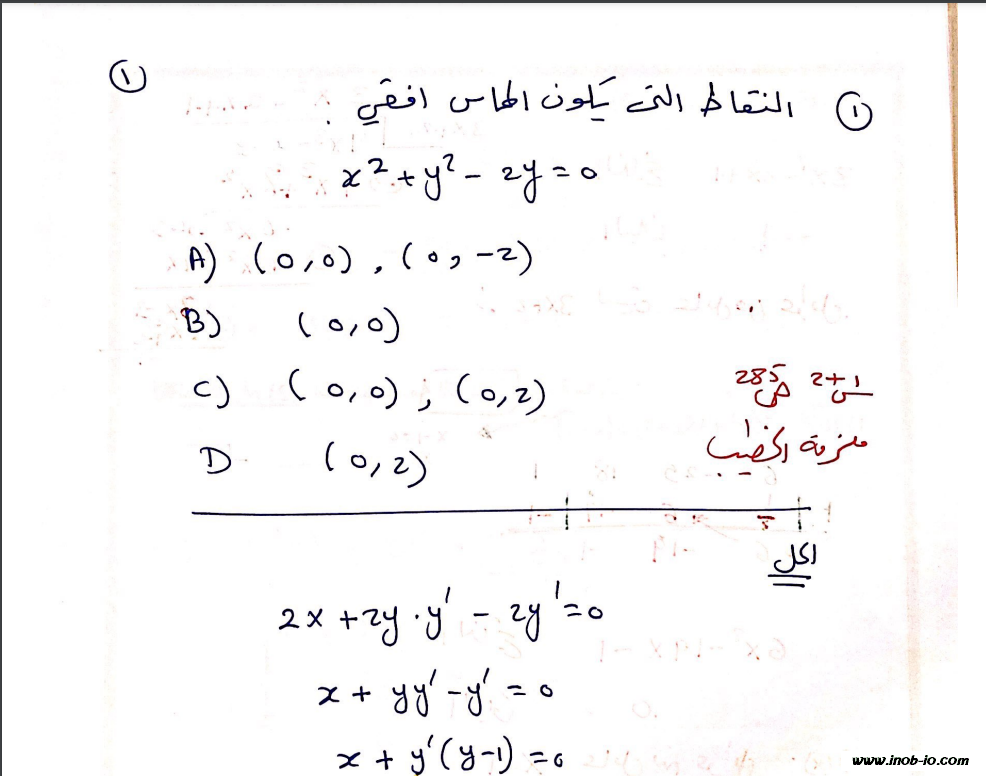 ①
① النقاط التي يكون المماس افقي :
x² + y² - 2y = 0
A) (0,0) , (0, -2)
B) (0,0)
C) (0,0) , (0,2)
D (0,2)
س 1+2 ص 285
ملزمة الخضيب
الحل
2x + 2y · y' - 2y' = 0
x + yy' - y' = 0
x + y'(y-1) = 0
www.inob-io.com